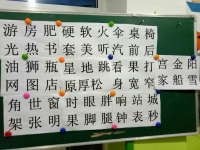 游房肥硬软火伞桌椅
光热书套美听汽前后
油狮瓶星地跳看果打
网图店原厚松身宽窄
宫金阳
家船雪
角世窗时眼胖响站城
架张明果脚腿钟表秒